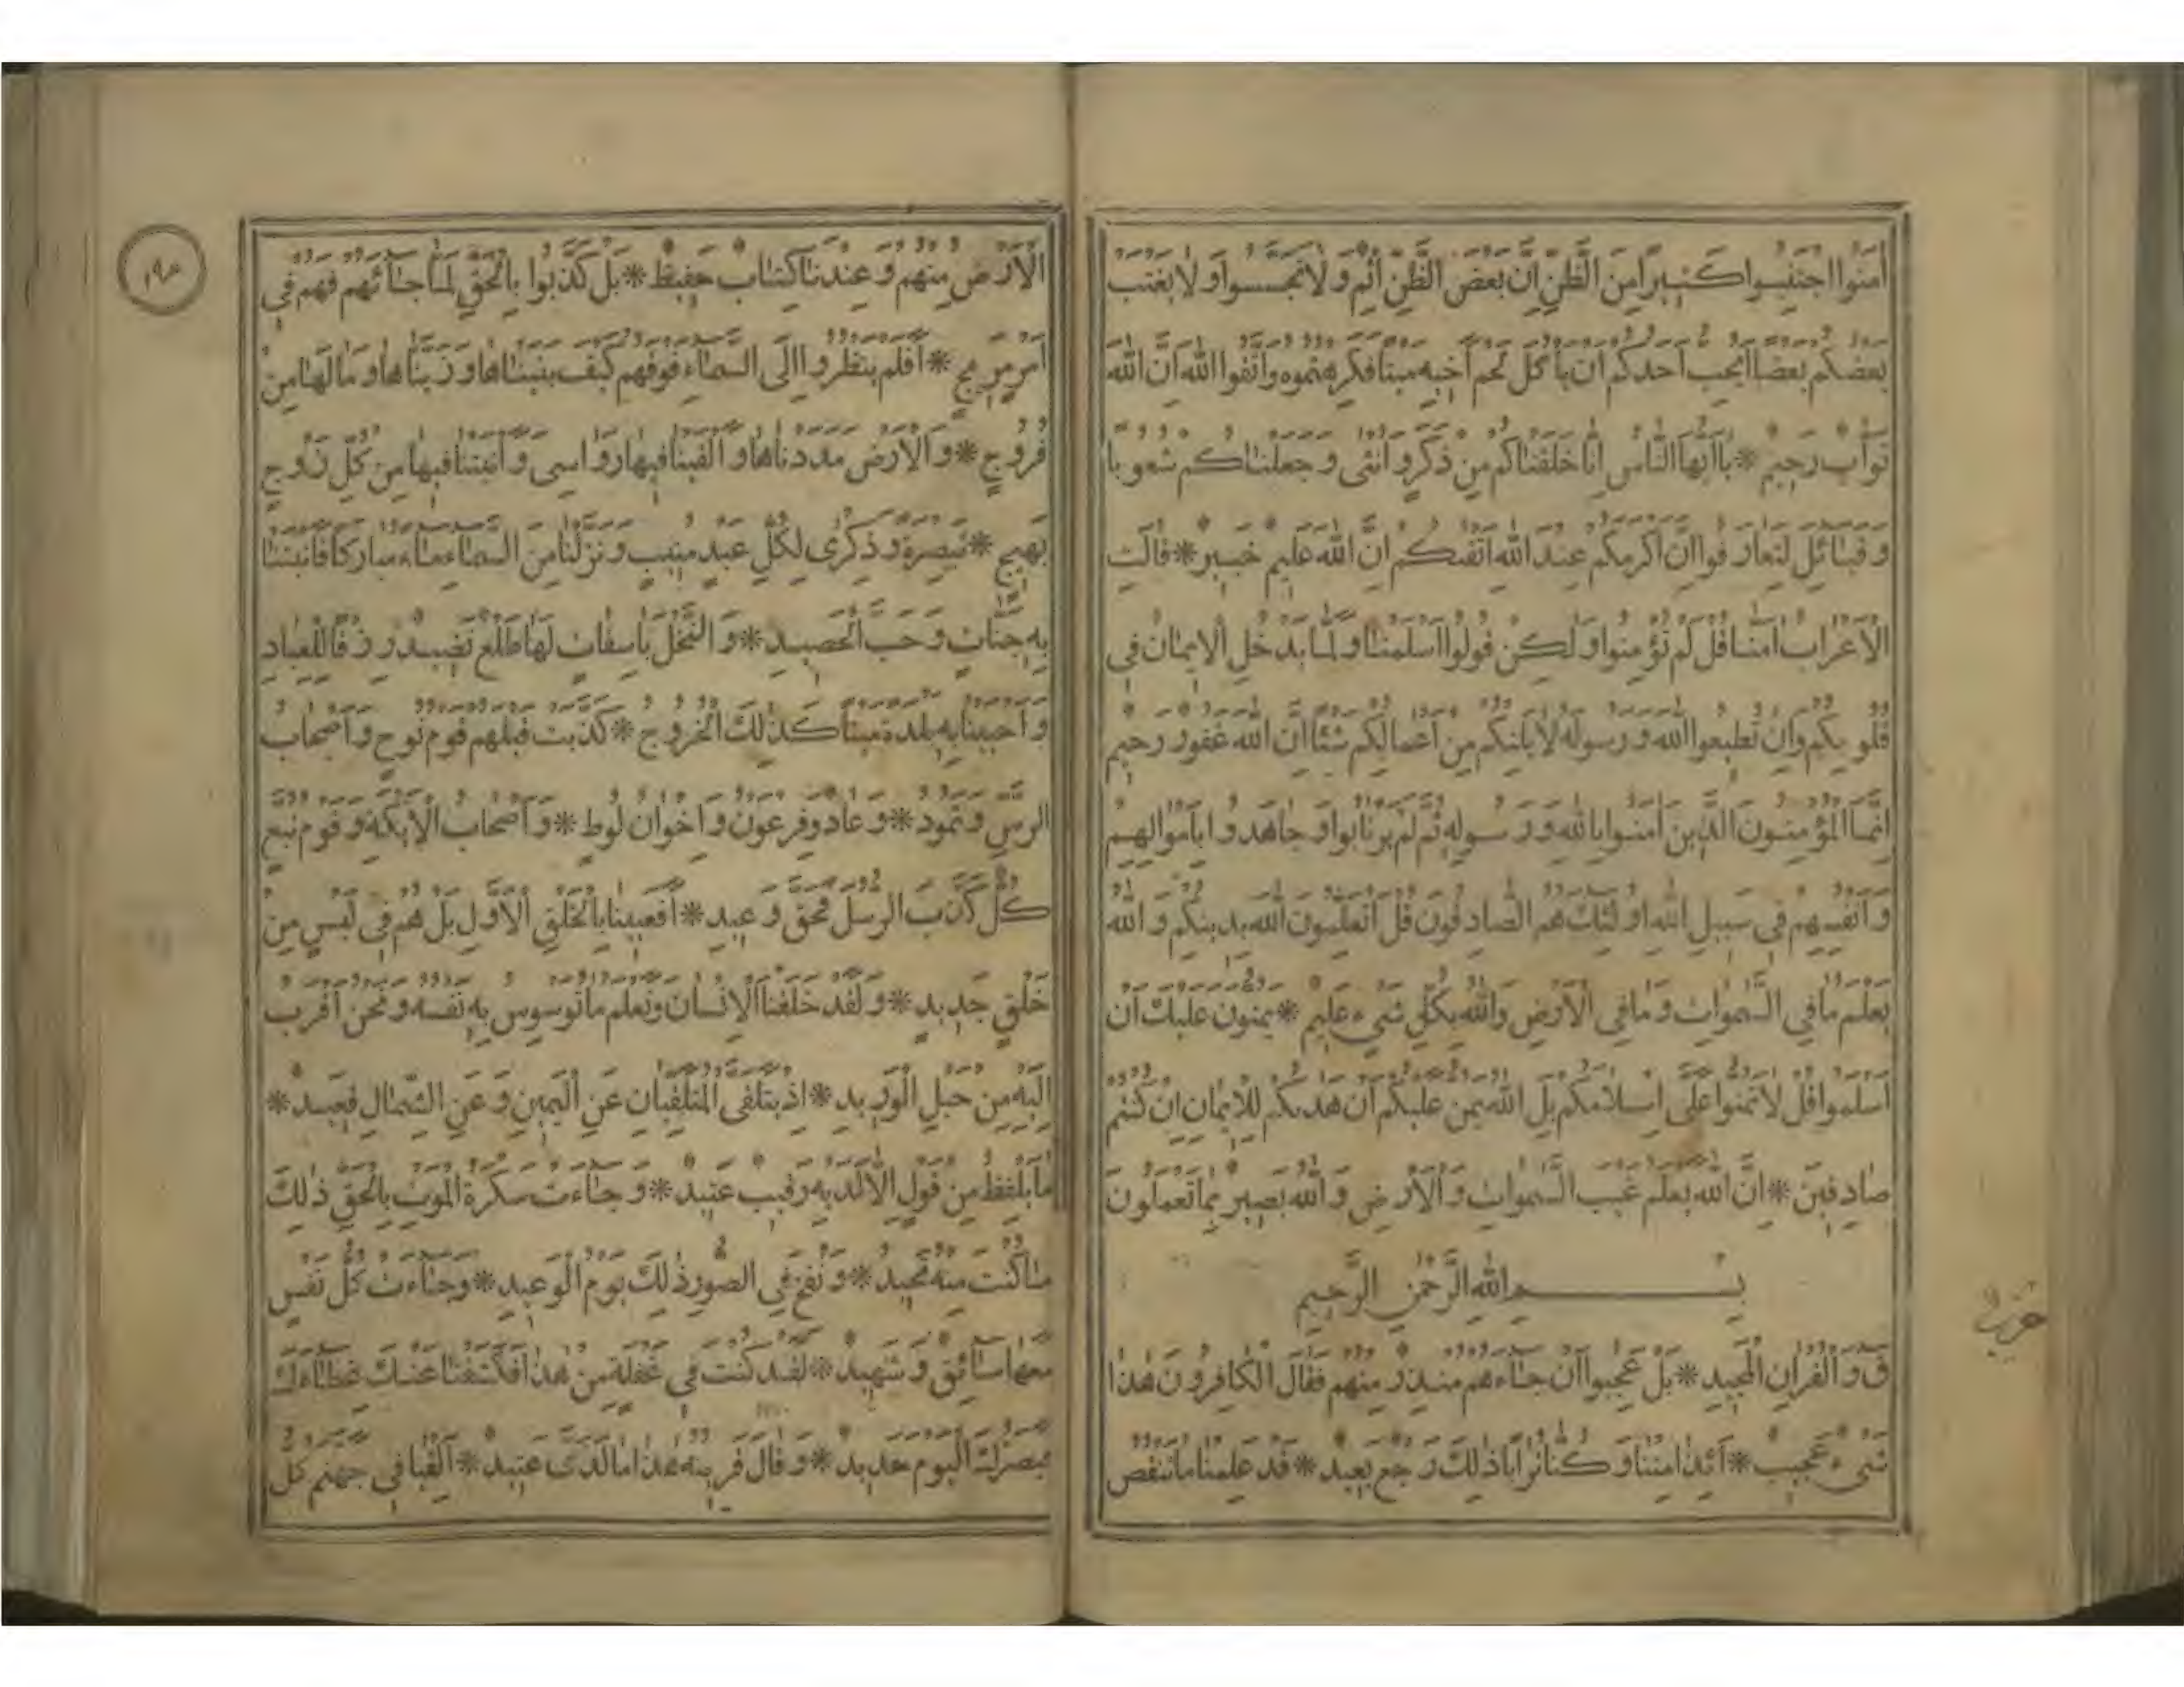 اٰمَنُوا اجْتَنِبُوا كَثِيرًا مِنَ الظَّنِّ اِنَّ بَعْضَ الظَّنِّ اِثْمٌ وَلَا تَجَسَّسُوا وَلَا يَغْتَبْ
بَعْضُكُمْ بَعْضًا اَيُحِبُّ اَحَدُكُمْ اَنْ يَأْكُلَ لَحْمَ اَخِيهِ مَيْتًا فَكَرِهْتُمُوهُ وَاتَّقُوا اللّٰهَ اِنَّ اللّٰهَ
تَوَّابٌ رَحِيمٌ * يَااَيُّهَا النَّاسُ اِنَّا خَلَقْنَاكُمْ مِنْ ذَكَرٍ وَاُنْثٰى وَجَعَلْنَاكُمْ شُعُوبًا
وَقَبَائِلَ لِتَعَارَفُوا اِنَّ اَكْرَمَكُمْ عِنْدَ اللّٰهِ اَتْقٰيكُمْ اِنَّ اللّٰهَ عَلِيمٌ خَبِيرٌ * قَالَتِ
الْاَعْرَابُ اٰمَنَّا قُلْ لَمْ تُؤْمِنُوا وَلٰكِنْ قُولُوا اَسْلَمْنَا وَلَمَّا يَدْخُلِ الْاِيمَانُ فِي
قُلُوبِكُمْ وَاِنْ تُطِيعُوا اللّٰهَ وَرَسُولَهُ لَا يَلِتْكُمْ مِنْ اَعْمَالِكُمْ شَيْئًا اِنَّ اللّٰهَ غَفُورٌ رَحِيمٌ
اِنَّمَا الْمُؤْمِنُونَ الَّذِينَ اٰمَنُوا بِاللّٰهِ وَرَسُولِهِ ثُمَّ لَمْ يَرْتَابُوا وَجَاهَدُوا بِاَمْوَالِهِمْ
وَاَنْفُسِهِمْ فِي سَبِيلِ اللّٰهِ اُولٰئِكَ هُمُ الصَّادِقُونَ قُلْ اَتُعَلِّمُونَ اللّٰهَ بِدِينِكُمْ وَاللّٰهُ
يَعْلَمُ مَا فِي السَّمٰوَاتِ وَمَا فِي الْاَرْضِ وَاللّٰهُ بِكُلِّ شَيْءٍ عَلِيمٌ * يَمُنُّونَ عَلَيْكَ اَنْ
اَسْلَمُوا قُلْ لَا تَمُنُّوا عَلَيَّ اِسْلَامَكُمْ بَلِ اللّٰهُ يَمُنُّ عَلَيْكُمْ اَنْ هَدٰيكُمْ لِلْاِيمَانِ اِنْ كُنْتُمْ
صَادِقِينَ * اِنَّ اللّٰهَ يَعْلَمُ غَيْبَ السَّمٰوَاتِ وَالْاَرْضِ وَاللّٰهُ بَصِيرٌ بِمَا تَعْمَلُونَ
بِسْمِ اللّٰهِ الرَّحْمٰنِ الرَّحِيمِ
حزب
ق وَالْقُرْاٰنِ الْمَجِيدِ * بَلْ عَجِبُوا اَنْ جَاءَهُمْ مُنْذِرٌ مِنْهُمْ فَقَالَ الْكَافِرُونَ هٰذَا
شَيْءٌ عَجِيبٌ * اَئِذَا مِتْنَا وَكُنَّا تُرَابًا ذٰلِكَ رَجْعٌ بَعِيدٌ * قَدْ عَلِمْنَا مَا تَنْقُصُ
الْاَرْضُ مِنْهُمْ وَعِنْدَنَا كِتَابٌ حَفِيظٌ * بَلْ كَذَّبُوا بِالْحَقِّ لَمَّا جَائَهُمْ فَهُمْ فِي
اَمْرٍ مَرِيجٍ * اَفَلَمْ يَنْظُرُوا اِلَى السَّمَاءِ فَوْقَهُمْ كَيْفَ بَنَيْنَاهَا وَزَيَّنَّاهَا وَمَا لَهَا مِنْ
فُرُوجٍ * وَالْاَرْضَ مَدَدْنَاهَا وَاَلْقَيْنَا فِيهَا رَوَاسِيَ وَاَنْبَتْنَا فِيهَا مِنْ كُلِّ زَوْجٍ
بَهِيجٍ * تَبْصِرَةً وَذِكْرٰى لِكُلِّ عَبْدٍ مُنِيبٍ وَنَزَّلْنَا مِنَ السَّمَاءِ مَاءً مُبَارَكًا فَاَنْبَتْنَا
بِهِ جَنَّاتٍ وَحَبَّ الْحَصِيدِ * وَالنَّخْلَ بَاسِقَاتٍ لَهَا طَلْعٌ نَضِيدٌ رِزْقًا لِلْعِبَادِ
وَاَحْيَيْنَا بِهِ بَلْدَةً مَيْتًا كَذٰلِكَ الْخُرُوجُ * كَذَّبَتْ قَبْلَهُمْ قَوْمُ نُوحٍ وَاَصْحَابُ
الرَّسِّ وَثَمُودُ * وَعَادٌ وَفِرْعَوْنُ وَاِخْوَانُ لُوطٍ * وَاَصْحَابُ الْاَيْكَةِ وَقَوْمُ تُبَّعٍ
كُلٌّ كَذَّبَ الرُّسُلَ فَحَقَّ وَعِيدِ * اَفَعَيِينَا بِالْخَلْقِ الْاَوَّلِ بَلْ هُمْ فِي لَبْسٍ مِنْ
خَلْقٍ جَدِيدٍ * وَلَقَدْ خَلَقْنَا الْاِنْسَانَ وَنَعْلَمُ مَا تُوَسْوِسُ بِهِ نَفْسُهُ وَنَحْنُ اَقْرَبُ
اِلَيْهِ مِنْ حَبْلِ الْوَرِيدِ * اِذْ يَتَلَقَّى الْمُتَلَقِّيَانِ عَنِ الْيَمِينِ وَعَنِ الشِّمَالِ قَعِيدٌ *
مَا يَلْفِظُ مِنْ قَوْلٍ اِلَّا لَدَيْهِ رَقِيبٌ عَتِيدٌ * وَجَاءَتْ سَكْرَةُ الْمَوْتِ بِالْحَقِّ ذٰلِكَ
مَا كُنْتَ مِنْهُ تَحِيدُ * وَنُفِخَ فِي الصُّورِ ذٰلِكَ يَوْمُ الْوَعِيدِ * وَجَاءَتْ كُلُّ نَفْسٍ
مَعَهَا سَائِقٌ وَشَهِيدٌ * لَقَدْ كُنْتَ فِي غَفْلَةٍ مِنْ هٰذَا فَكَشَفْنَا عَنْكَ غِطَاءَكَ
فَبَصَرُكَ الْيَوْمَ حَدِيدٌ * وَقَالَ قَرِينُهُ هٰذَا مَا لَدَيَّ عَتِيدٌ * اَلْقِيَا فِي جَهَنَّمَ كُلَّ